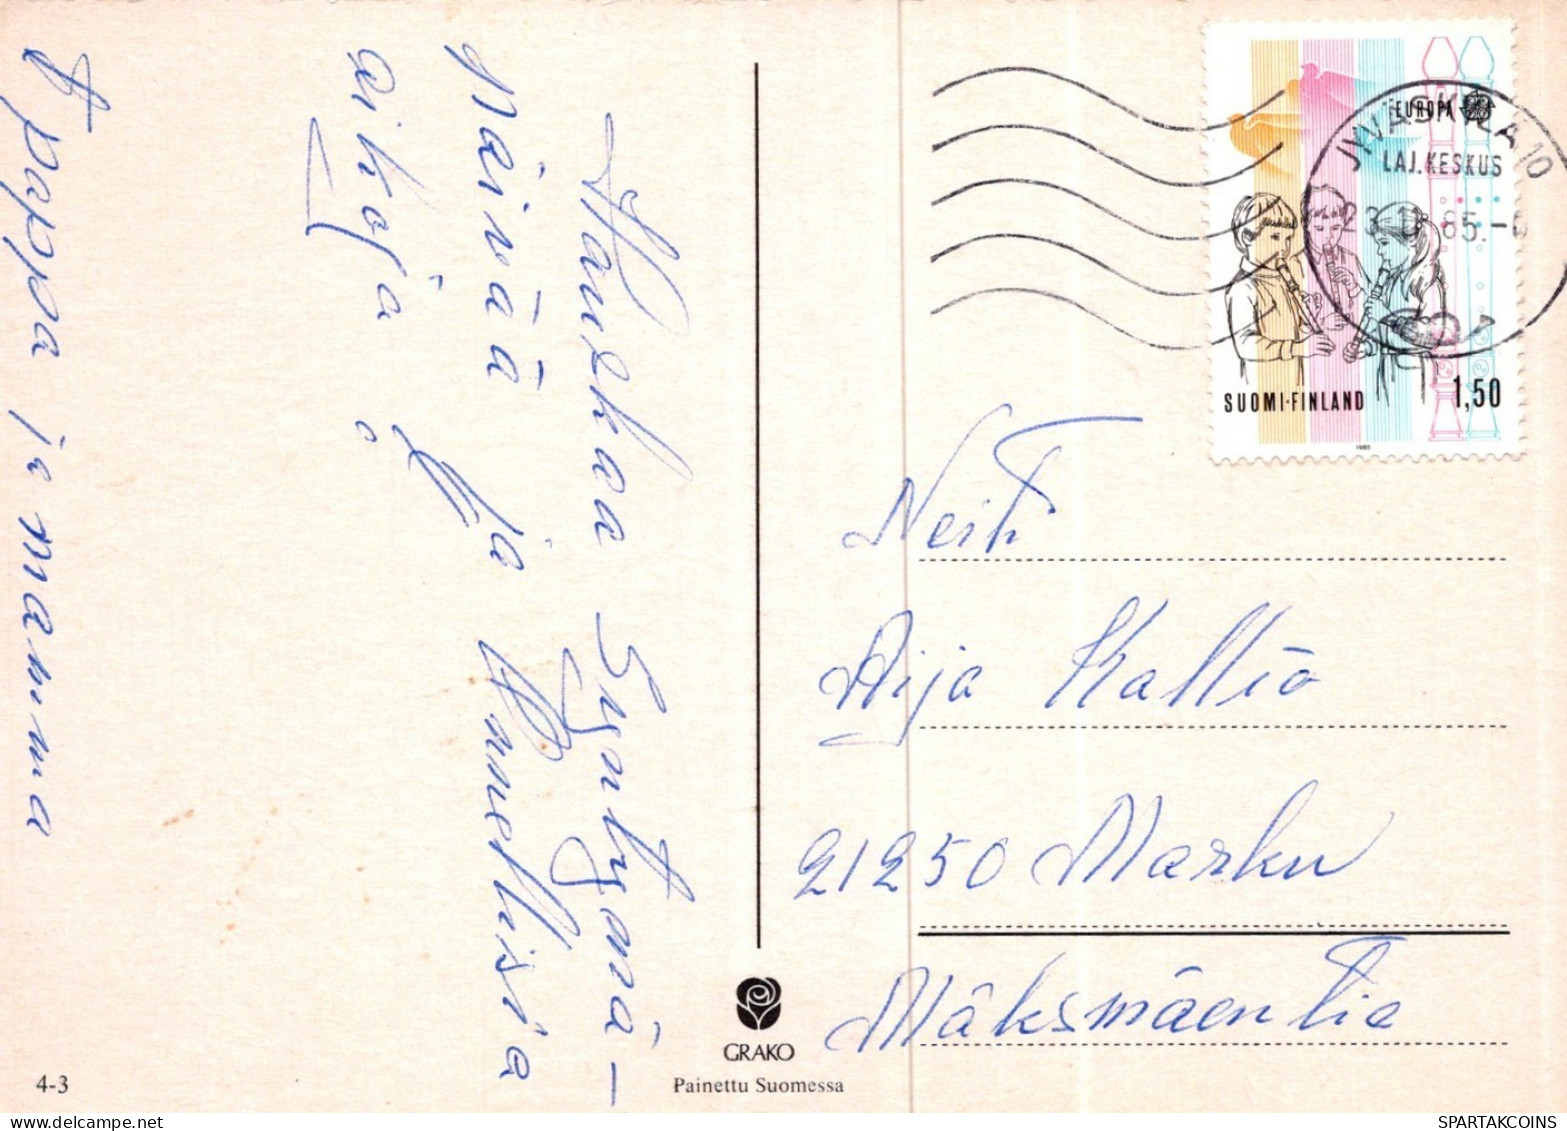 Hauskaa Syntymä-
näivää ja Annellisia
aikoja!
T pappa ja mamma
EUROPA
JYVÄSKYLÄ 10
LAJ.KESKUS
85.-
SUOMI-FINLAND
1,50
1985
Neiti
Aija Kallio
21250 Masku
Mäksmäentie
GRAKO
Painettu Suomessa
4-3
SPARTAKCOINS